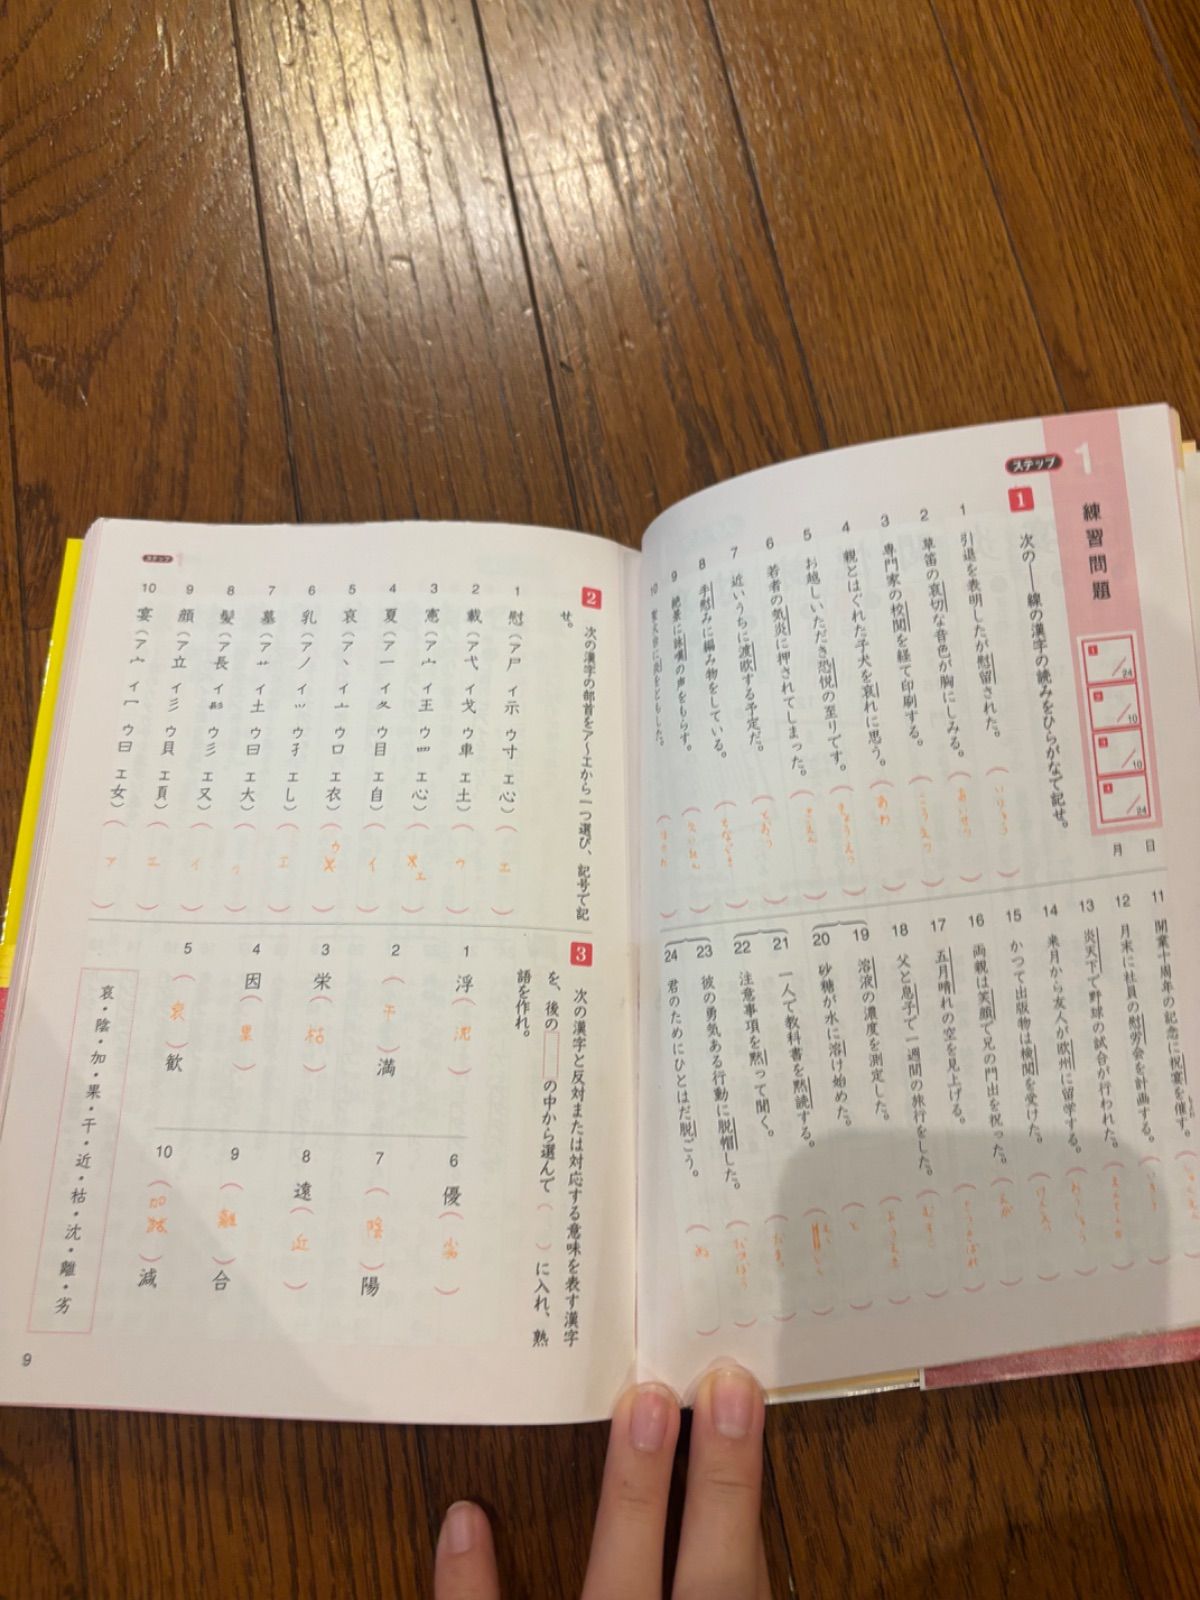 ステップ 1 練習問題
1 /24
2 /10
3 /10
4 /24
月 日
1 次の――線の漢字の読みをひらがなで記せ。
1 引退を表明したが慰留された。(いりゅう)
2 草笛の哀切な音色が胸にしみる。(あいせつ)
3 専門家の校閲を経て印刷する。(こうえつ)
4 親とはぐれた子犬を哀れに思う。(あわ)
5 お越しいただき恐悦の至りです。(きょうえつ)
6 若者の気炎に押されてしまった。(きえん)
7 近いうちに渡欧する予定だ。(とおう)
8 手慰みに編み物をしている。(てなぐさ)
9 絶景に詠嘆の声をもらす。(えいたん)
10
11 開業十周年の記念に祝宴を催す。
12 月末に社員の慰労会を計画する。(いろう)
13 炎天下で野球の試合が行われた。(えんてんか)
14 来月から友人が欧州に留学する。(おうしゅう)
15 かつて出版物は検閲を受けた。(けんえつ)
16 両親は笑顔で兄の門出を祝った。(えがお)
17 五月晴れの空を見上げる。(さつきばれ)
18 父と息子で一週間の旅行をした。(むすこ)
19 溶液の濃度を測定した。(ようえき)
20 砂糖が水に溶け始めた。(と)
21 一人で教科書を黙読する。
22 注意事項を黙って聞く。(だま)
23 彼の勇気ある行動に脱帽した。(だつぼう)
24 君のためにひとはだ脱ごう。(ぬ)
ステップ 1
2 次の漢字の部首をア～エから一つ選び、記号で記
せ。
1 慰(ア尸 イ示 ウ寸 エ心)(エ)
2 載(ア弋 イ戈 ウ車 エ土)(ウ)
3 憲(ア宀 イ王 ウ罒 エ心)(エ)
4 夏(ア一 イ夂 ウ目 エ自)(イ)
5 哀(ア丶 イ亠 ウ口 エ衣)(ウ)
6 乳(アノ イ⺍ ウ孑 エ乚)(エ)
7 墓(ア艹 イ土 ウ日 エ大)
8 髪(ア長 イ髟 ウ彡 エ又)(イ)
9 顔(ア立 イ彡 ウ貝 エ頁)(エ)
10 宴(ア宀 イ冖 ウ日 エ女)(ア)
3 次の漢字と反対または対応する意味を表す漢字
を、後の□の中から選んで( )に入れ、熟
語を作れ。
1 浮(沈)
2 (干)満
3 栄(枯)
4 因(果)
5 (哀)歓
6 優(劣)
7 (陰)陽
8 遠(近)
9 (離)合
10 (加)減
哀・陰・加・果・干・近・枯・沈・離・劣
9